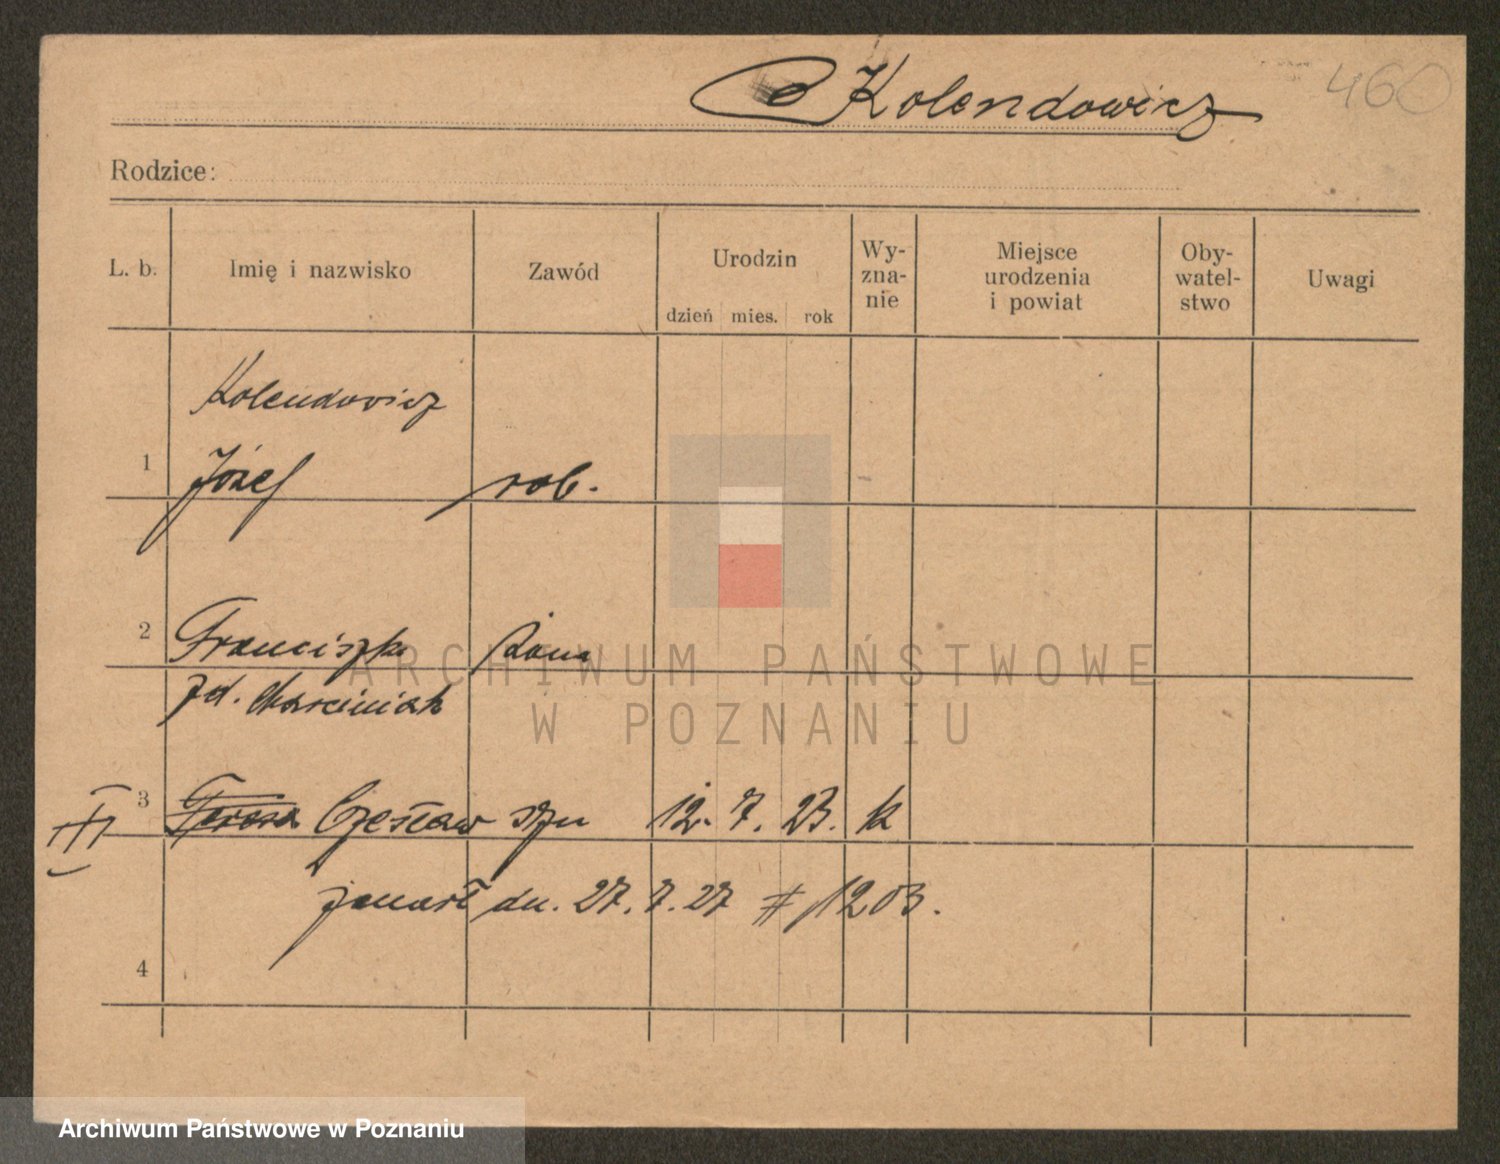 Kolendowicz 460
Rodzice:
L. b. Imię i nazwisko Zawód Urodzin dzień mies. rok Wy-zna-nie Miejsce urodzenia i powiat Oby-watel-stwo Uwagi
Kolendowicz
1 Józef rob.
2 Franciszka żona
zd. Marciniak
III 3 Teresa Czesław syn 12. 7. 23. k
zmarł dn. 27. 7. 27 # 1203.
4
ARCHIWUM PAŃSTWOWE
W POZNANIU
Archiwum Państwowe w Poznaniu